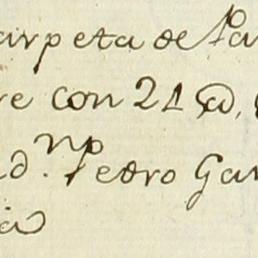 arpeta de Pa
re con 21 @,
id. np Pedro Gar
ia